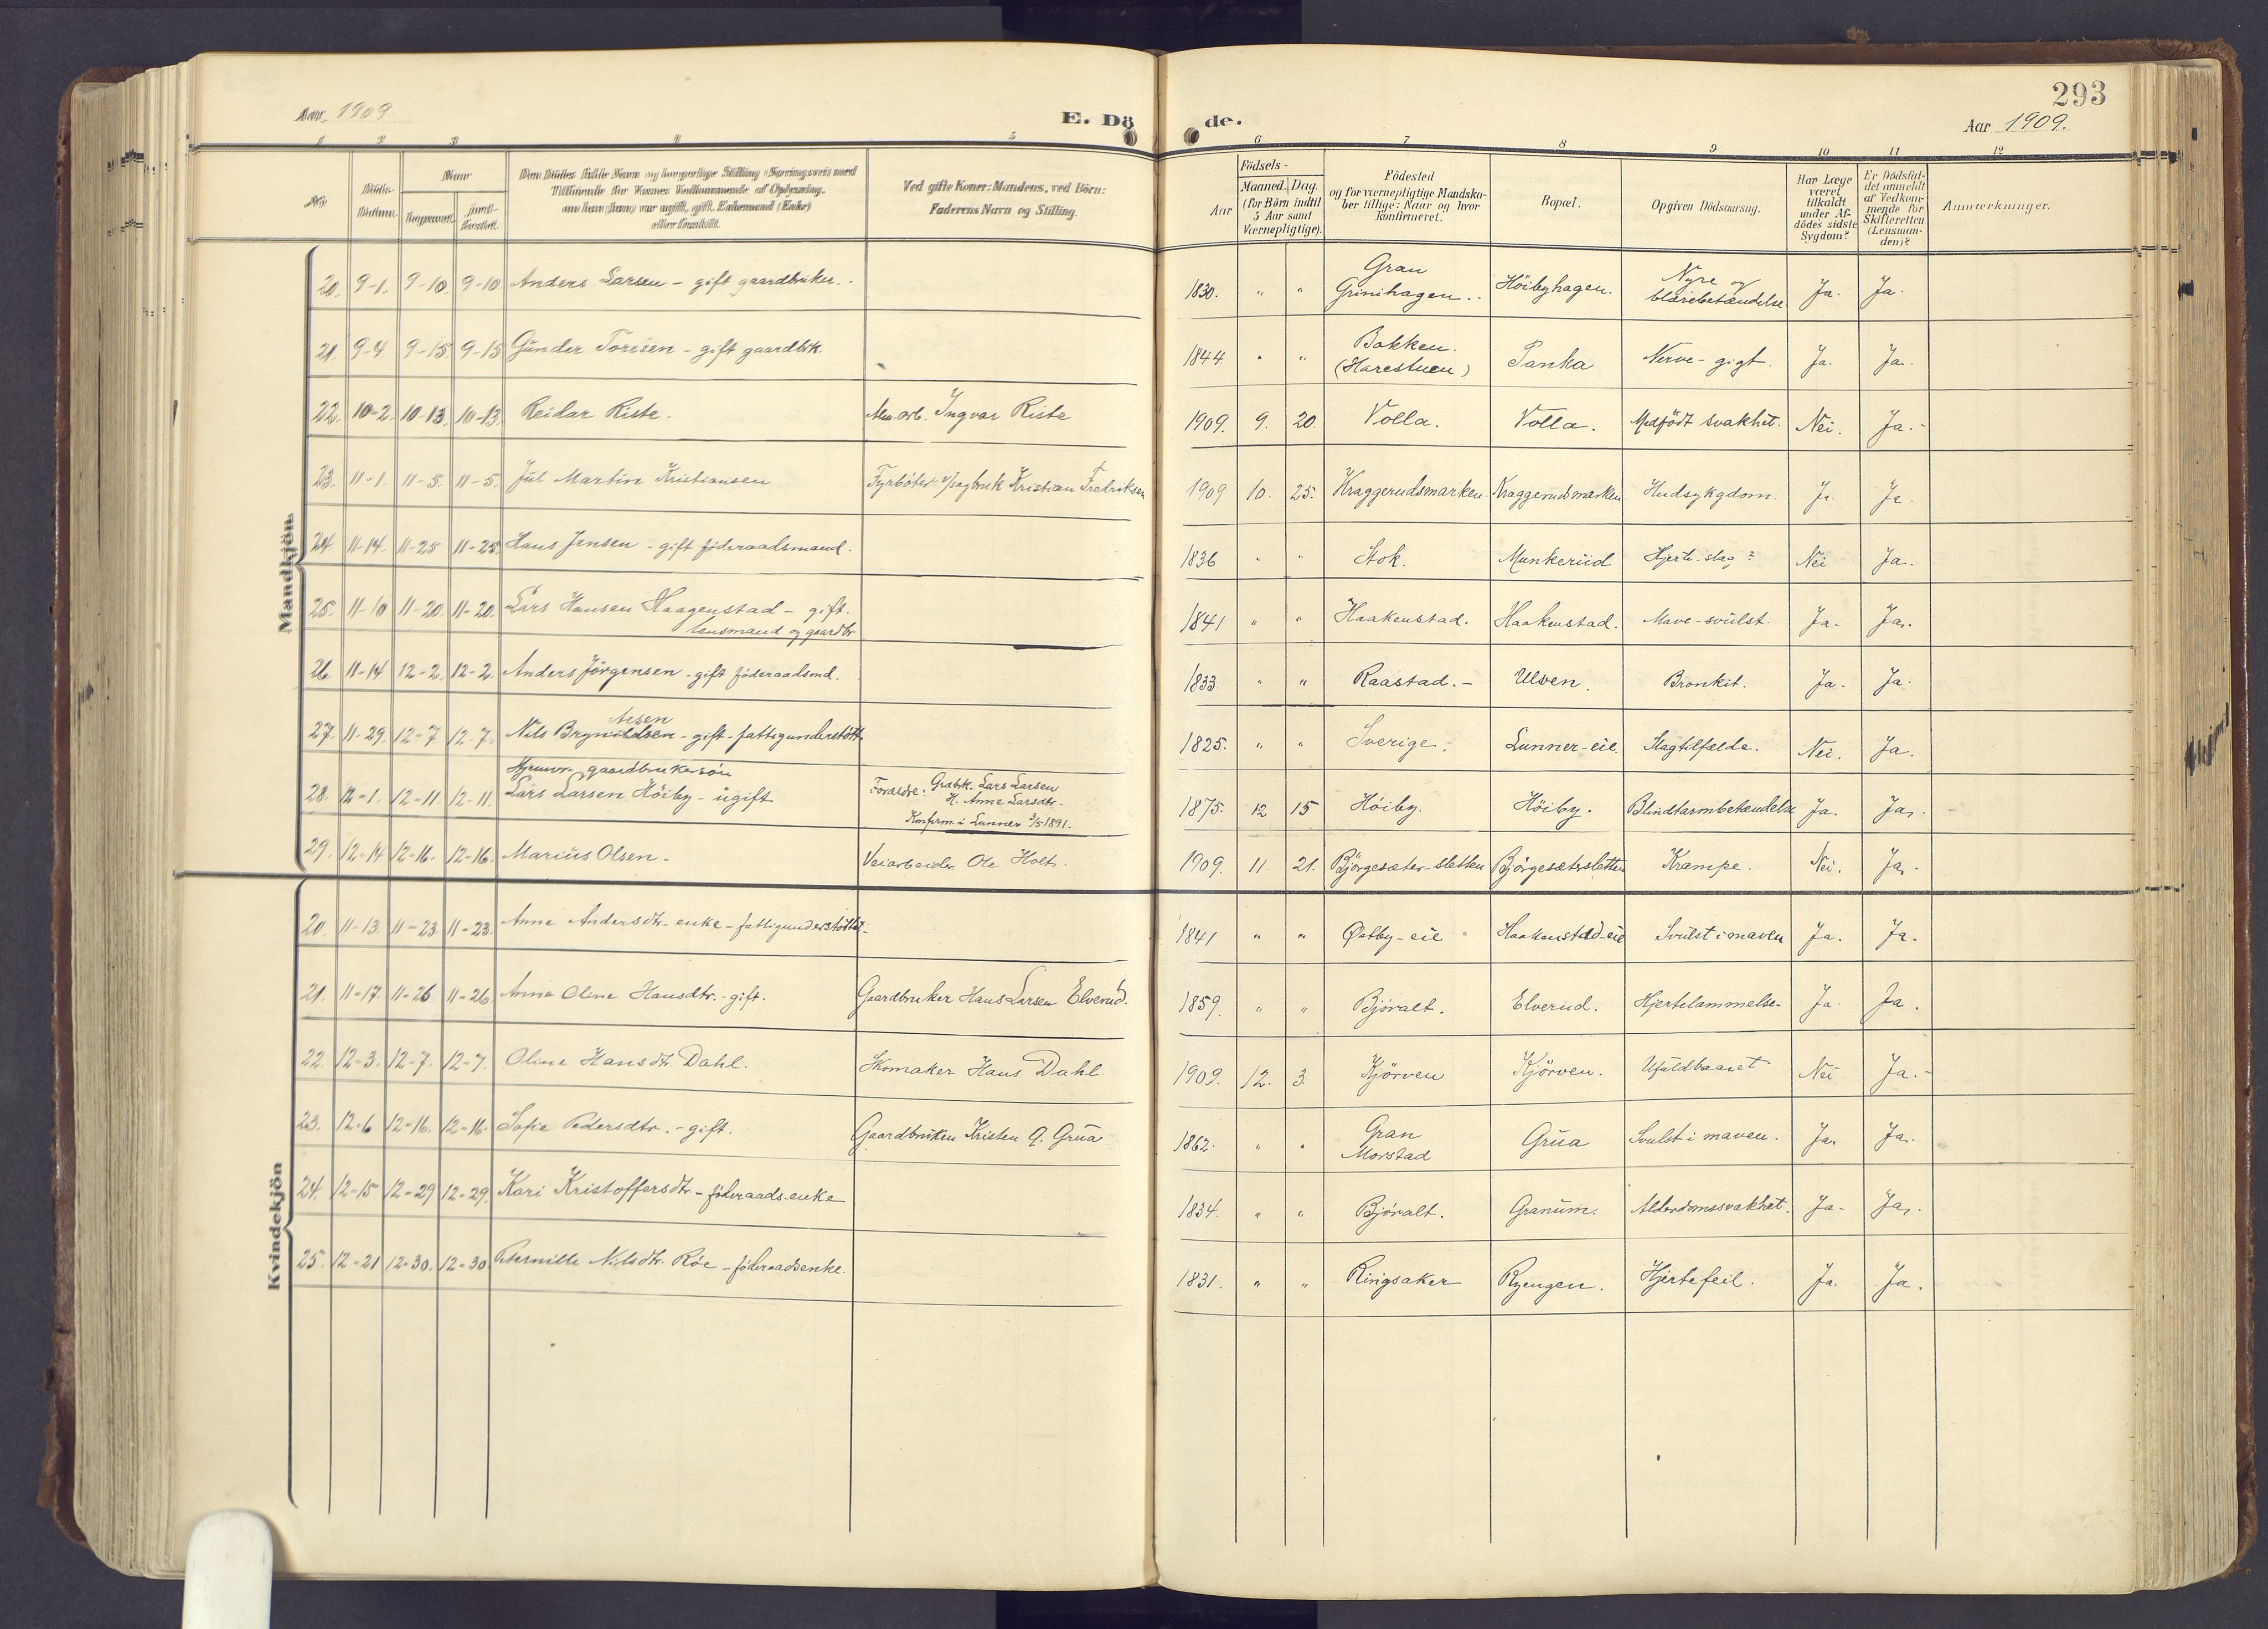 293
Aar 1909.
E. Dö
de.
Aar 1909.
1 2 3 4 5 6 7 8 9 10 11 12
No.
Döds-
Datum.
Naar
Begravet.
Jord-
fæstet.
Den Dödes fulde Navn og borgerlige Stilling (Næringsvei) med
Tilföiende for Voxnes Vedkommende af Oplysning,
om han (hun) var ugift, gift, Enkemand (Enke)
eller fraskilt.
Ved gifte Koner: Mandens, ved Börn:
Faderens Navn og Stilling.
Födsels-
Aar
Maaned. Dag.
(for Börn indtil
5 Aar samt
Værnepligtige).
Födested
og for værnepligtige Mandska-
ber tillige: Naar og hvor
konfirmeret.
Bopæl.
Opgiven Dödsaarsag.
Har Læge
været
tilkaldt
under Af-
dödes sidste
Sygdom?
Er Dödsfal-
det anmeldt
af Vedkom-
mende for
Skifteretten
(Lensman-
den)?
Anmærkninger.
Mandkjön.
20. 9-1. 9-10. 9-10 Anders Larsen - gift gaardbruker. 1830. " " Gran Grinihagen. Höibyhagen. Nyre og blærebetændelse Ja. Ja.
21. 9-4 9-15. 9-15 Gunder Toresen - gift gaardbrk. 1844. " " Bakken. (Harestuen) Panka Nerve-gigt. Ja. Ja.
22. 10-2. 10-13. 10-13. Reidar Riste. arb. Ingvar Riste 1909. 9. 20. Volla. Volla. Medfödt svakhet. Nei. Ja.
23. 11-1. 11-5. 11-5. Jul Martin Kristiansen Fyrböter v/sagbruk Kristian Fredriksen 1909 10. 25. Kraggerudsmarken. Kraggerudsmarken Hudsykgdom. Ja Ja
24 11-14. 11-25 11-25. Hans Jensen - gift föderaadsmand. 1836 " " Stok. Munkerud Hjerte-slag? Nei Ja.
25. 11-10 11-20. 11-20. Lars Hansen Haagenstad - gift. lensmand og gaardbr 1841 " " Haakenstad. Haakenstad. Mave-svulst. Ja. Ja.
26. 11-14 12-2. 12-2. Anders Jörgensen - gift föderaadsmd. 1833. " " Raastad.- Ulven. Bronkit. Ja. Ja.
27. 11-29. 12-7 12-7. Nils Brynildsen - gift - fattigunderstött. 1825. " " Sverige. Lunner-eie. Slagtilfælde. Nei. Ja.
28. 12-1. 12-11. 12-11. gaardbrukersön
Lars Larsen Höiby - ugift Forældre: Grdbrk. Lars Larsen
H. Anne Larsdtr.
Konfirm. i Lunner 3/5 1891. 1875. 12 15 Höiby. Höiby. Blindtarmbetændelse Ja. Ja.
29. 12-14 12-16. 12-16. Marius Olsen. Veiarbeider Ole Holt. 1909. 11. 21. Björgesæter-sletten Björgesætersletten Krampe. Nei. Ja.
Kvindekjön
20. 11-13. 11-23 11-23. Anne Andersdtr. enke - fattigunderstöttet 1841 " " Østby-eie Haakenstad-eie Svulst i maven Ja. Ja.
21. 11-17. 11-26 11-26. Anne Oline Hansdtr. - gift. Gaardbruker Hans Larsen Elverud. 1859. " " Björalt. Elverud. Hjertelammelse. Ja. Ja.
22. 12-3. 12-7. 12-7. Oline Hansdtr. Dahl. Skomaker Hans Dahl. 1909. 12. 3. Kjörven Kjörven. Ufuldbaaret Nei Ja.-
23. 12-6 12-16. 12-16. Sofie Pedersdtr. - gift. Gaardbruker Kristen A. Grua. 1862. " " Gran Morstad Grua Svulst i maven. Ja. Ja.
24. 12-15 12-29 12-29. Kari Kristoffersdtr - föderaads-enke 1834. " " Björalt. Granum. Alderdomssvakhet. Ja. Ja.
25. 12-21 12-30. 12-30. Pernille Nilsdtr. Röe - föderaadsenke. 1831. " " Ringsaker Ryengen. Hjertefeil. Ja. Ja.